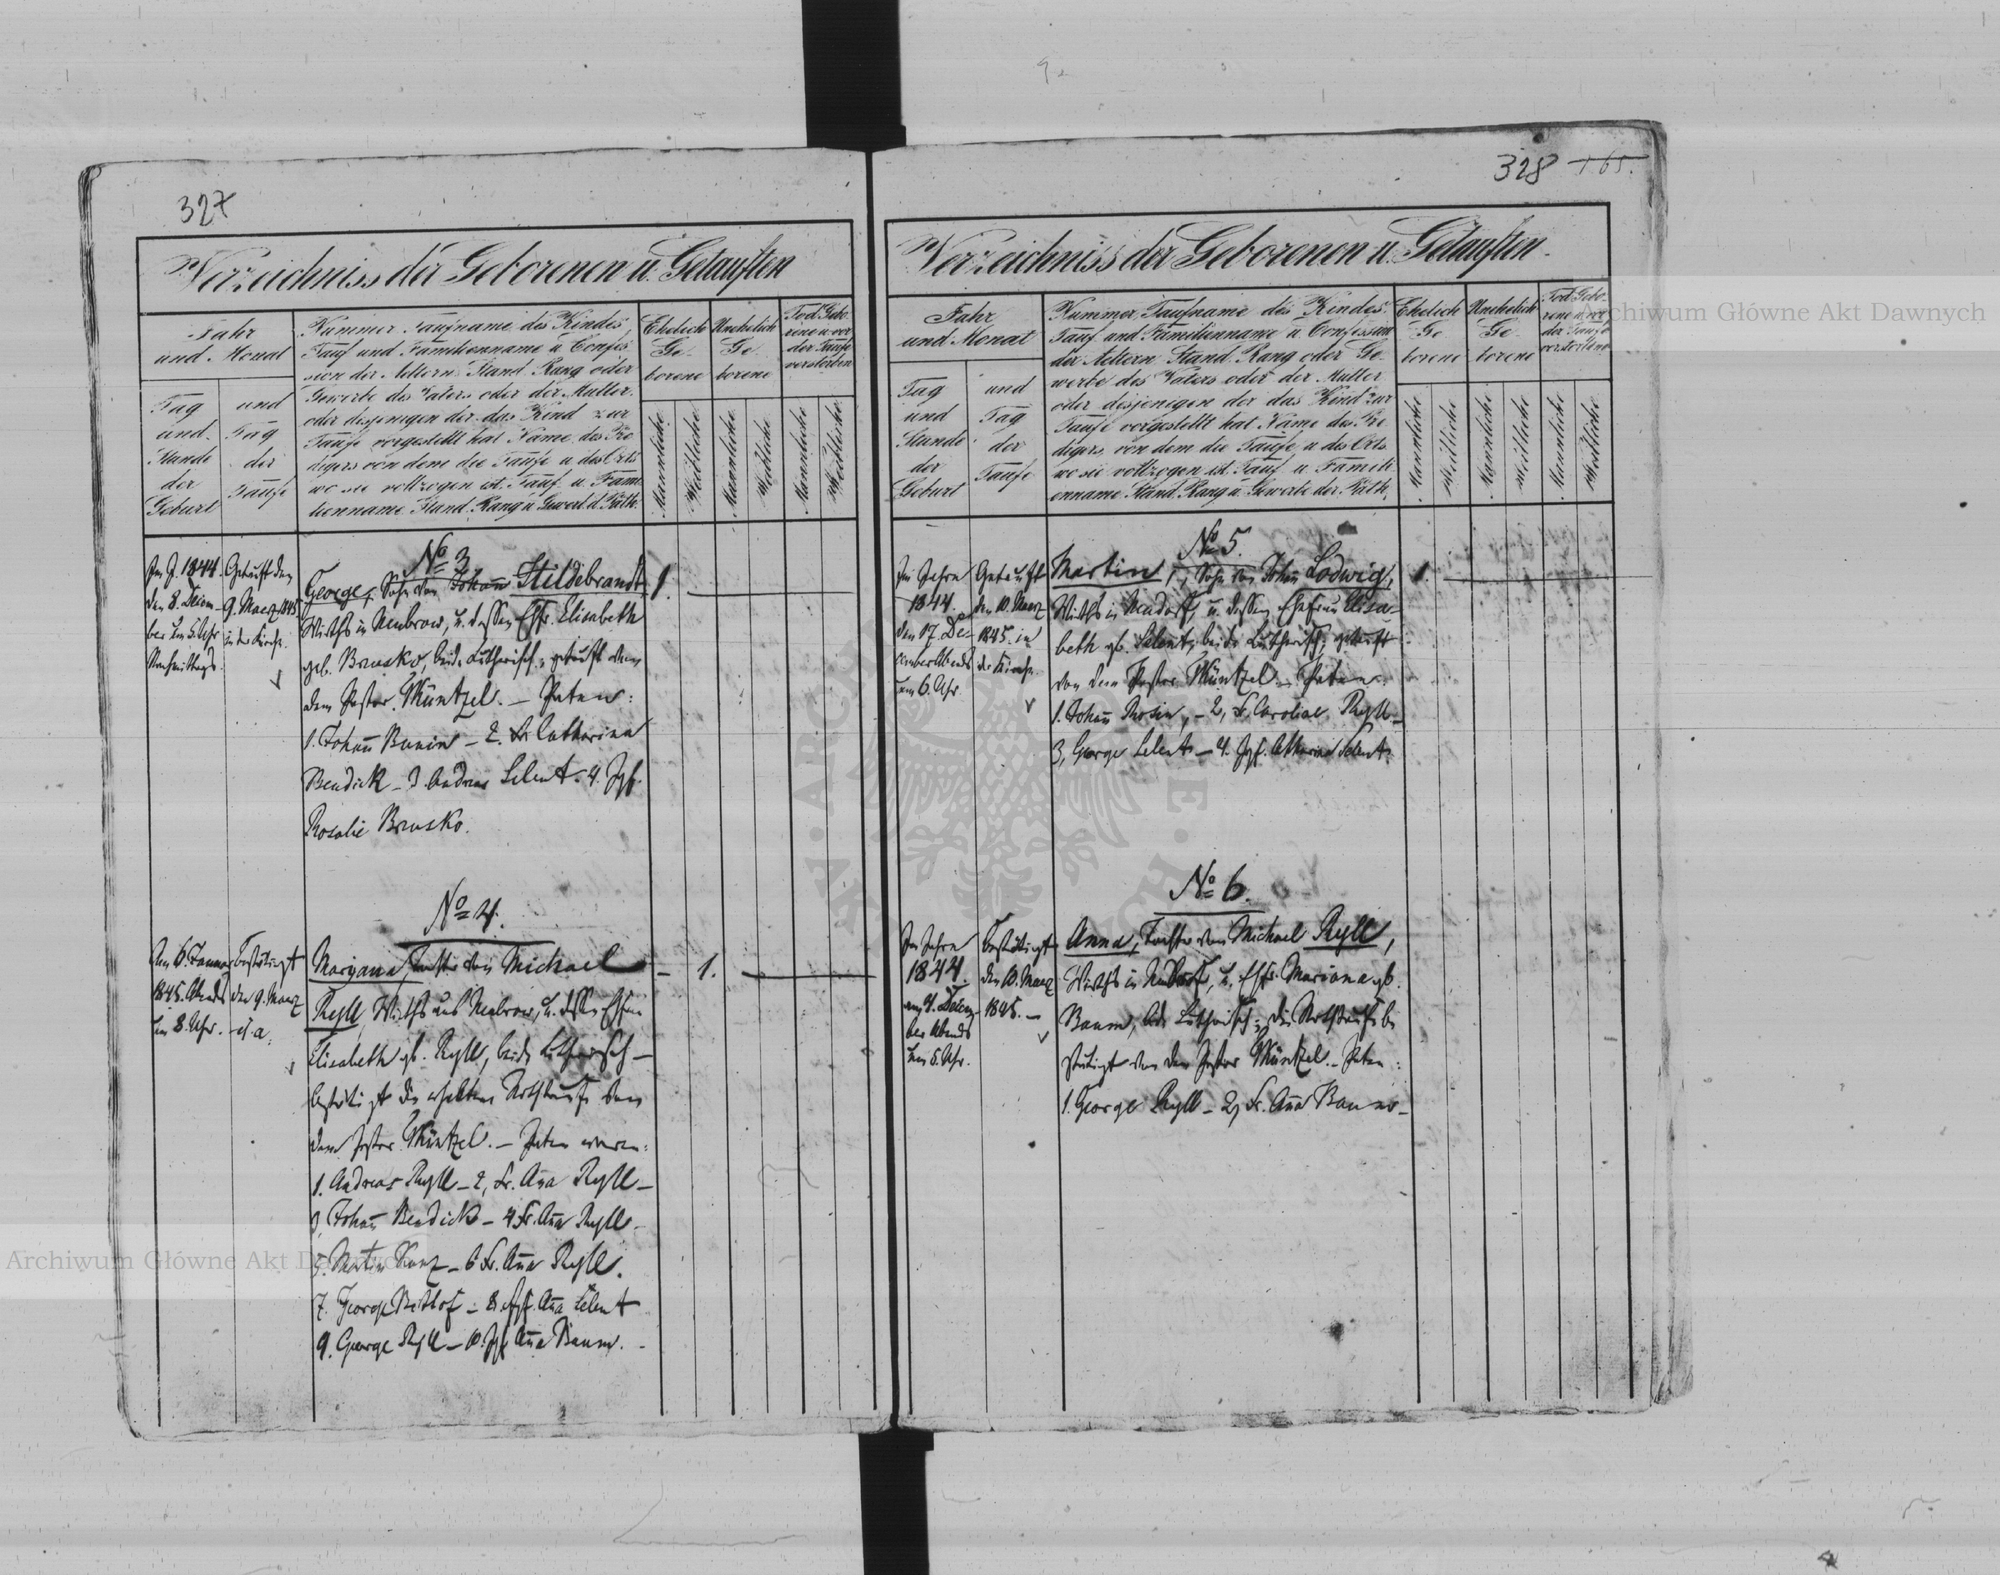 327
Verzeichniss der Geborenen u. Getauften
Jahr
und Monat
Tag
und
Stunde
der
Geburt
und
Tag
der
Taufe
Nummer Taufname des Kindes,
Tauf und Familienname u Confes
sion der Aeltern Stand Rang oder
Gewerbe des Vaters oder der Mutter
oder desjenigen der das Kind zur
Taufe vorgestellt hat Name des Pre
digers von dem die Taufe u des Orts
wo sie vollzogen ist. Tauf u. Fami
lienname Stand Rang u Gewerb. d. Path.
Ehelich
Ge
borene
Unehelich
Ge
borene
Tod Gebo
rene u. vor
der Taufe
verstorben
Männliche
Weibliche
Männliche
Weibliche
Männliche
Weibliche
Im J. 1844.
den 8. Decem-
ber um 5 Uhr
Nachmittags.
Getauft den
9. Maerz 1845
in der Kirche.
№ 3
George, Sohn von Johann Hildebrandt
Wirths in Neubrow, u. dessen Ehfr. Elisabeth
geb. Brusko, beide Lutherisch; getauft von
dem Pastor Müntzel. – Paten:
1. Johann Bunin – 2. Fr. Catharina
Bendick – 3. Andreas Lelent – 4. Jgf.
Rosalie Brusko.
1.
Am 6. Januar
1845. Abends
um 8. Uhr.
Bestätigt
den 9. Maerz
ej. a.
№ 4.
Maryana, Tochter von Michael
Ryll, Wirths aus Neubrow, u. dessen Ehfrau
Elisabeth gb. Ryll, beide Lutherisch –
bestätigt die erhaltene Nothtaufe von
dem Pastor Müntzel. – Paten waren:
1. Andreas Ryll – 2, Fr. Anna Ryll –
3 Johann Bendick – 4 Fr. Anna Ryll –
5. Martin – 6 Fr. Anna Ryll.
7. George – 8. Jgf. Anna Lelent
9. George Ryll – 10. Jgf. Anna Baum. -
– 1.
328 165.
Verzeichniss der Geborenen u. Getauften.
Jahr
und Monat
Tag
und
Stunde
der
Geburt
und
Tag
der
Taufe
Nummer Taufname des Kindes.
Tauf und Familienname u Confession
der Aeltern Stand Rang oder Ge
werbe des Vaters oder der Mutter
oder desjenigen der das Kind zur
Taufe vorgestellt hat Name des Pre
digers, von dem die Taufe u des Orts
wo sie vollzogen ist. Tauf u. Famili
enname Stand Rang u. Gewerbe der Path.
Ehelich
Ge
borene
Unehelich
Ge
borene
Tod Gebo-
rene u. vor
der Taufe
verstorbene
Männliche
Weibliche
Männliche
Weibliche
Männliche
Weibliche
Im Jahre
1844.
den 17. De-
cember Abends
um 6. Uhr.
Getauft
den 10. Maerz
1845. in
der Kirche.
№ 5.
Martin, Sohn von Johann Lodwig,
Wirths in Neudorf, u. dessen Ehefrau Elisa-
beth gb. Lelent, beide Lutherisch; getauft
von dem Pastor Müntzel – Paten:
1. Johann Rosin, – 2, Fr. Caroline Ryll –
3, George Lelent – 4. Jgf. Catharina Lelent.
1.
Im Jahre
1844.
am 4. Decem-
ber Abends
um 5. Uhr.
Bestätigt
den 10. Maerz
1845. –
№ 6.
Anna, Tochter von Michael Ryll,
Wirths in Neudorf, u. Ehfr. Mariana gb.
Baum, beide Lutherisch; die Nothtaufe be
stätigt von dem Pastor Müntzel. – Paten:
1. George Ryll – 2, Fr. Anna Baum –
Archiwum Główne Akt Dawnych
Archiwum Główne Akt Dawnych